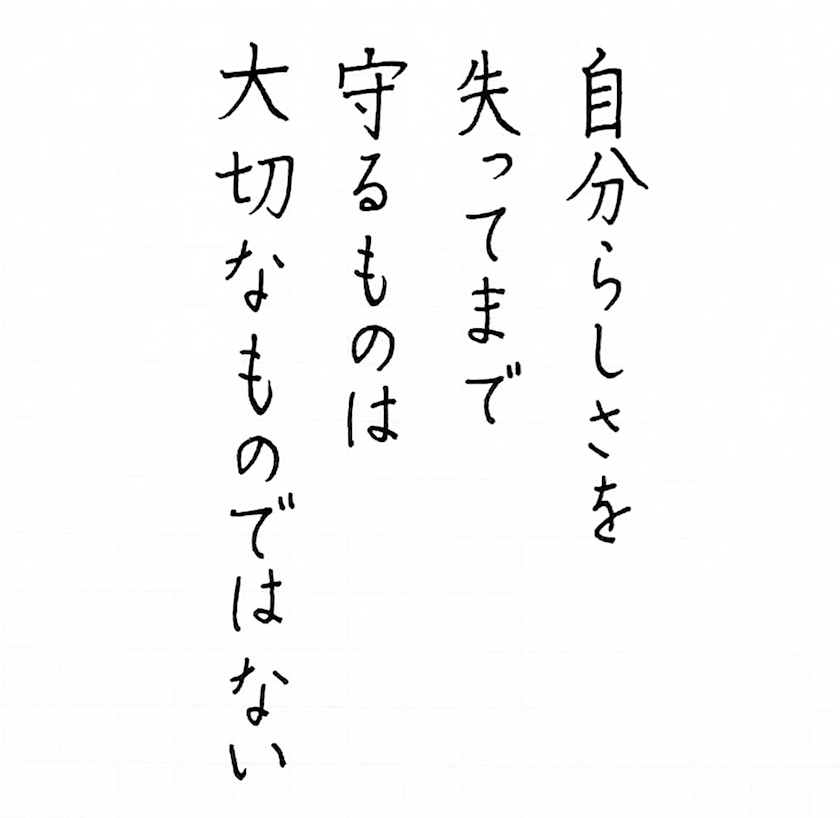 自分らしさを
失ってまで
守るものは
大切なものではない